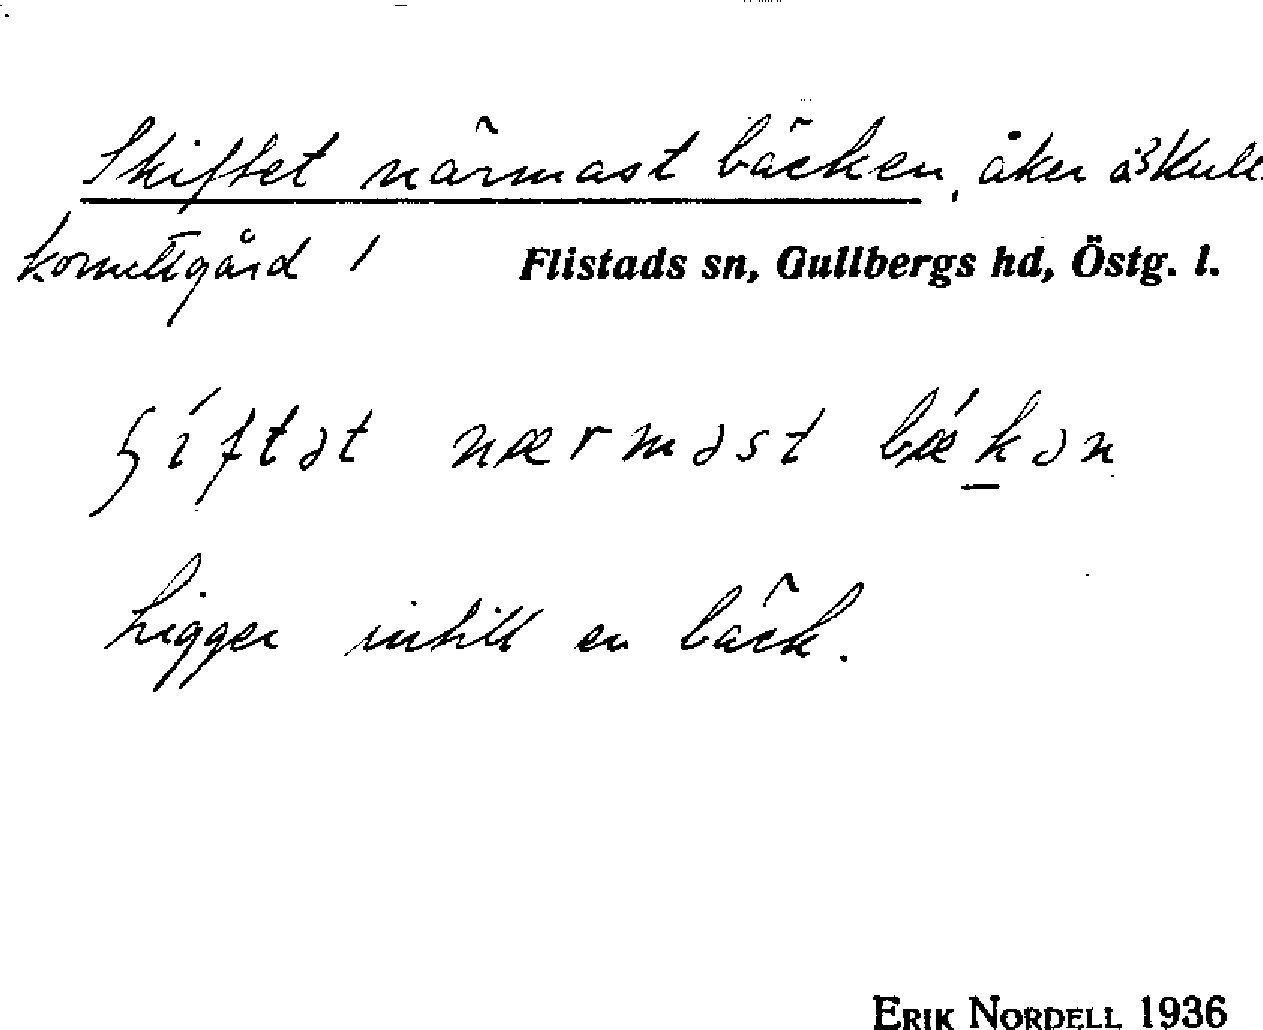 Skiftet närmast bäcken, åker å Kull
kornettgård 1 Flistads sn, Gullbergs hd, Östg. l.
ʂíftət nærməst bǽkən
Ligger intill en bäck.
ERIK NORDELL 1936